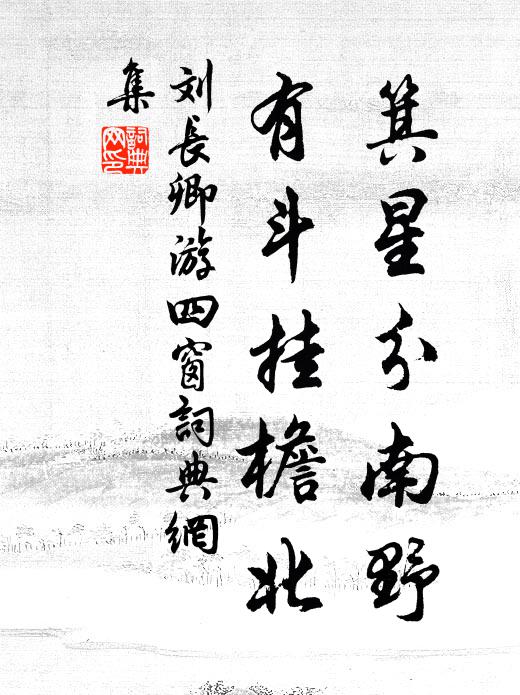 箕星分南野
有斗挂檐北
刘長卿游四窗詞典網
集
詞典
网印